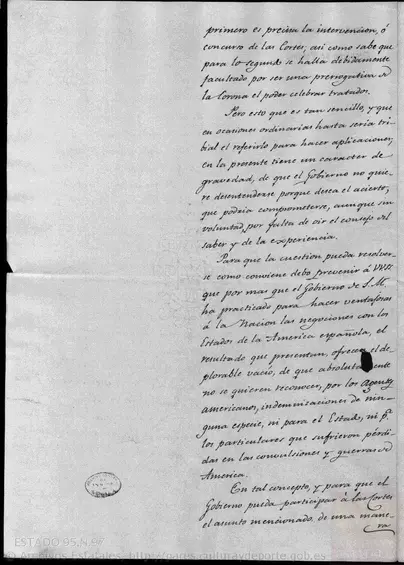 primero es precisa la intervencion, ó
concurso de las Cortes; así como sabe que
para lo segundo se halla debidamente
facultado por ser una prerrogativa de
la Corona el poder celebrar tratados.
Pero esto que es tan sencillo, y que
en ocasiones ordinarias hasta seria tri-
bial el referirlo para hacer aplicaciones,
en la presente tiene un caracter de
gravedad, de que el Gobierno no quie-
re desentenderse porque desea el acierto,
que podria comprometerse, aunque sin
voluntad, por falta de oir el consejo del
saber y de la experiencia.
Para que la cuestion pueda resolver-
se como conviene debo prevenir á VVEE
que por mas que el Gobierno de S.M.
ha practicado para hacer ventajosas
á la Nacion las negociones con los
Estados de la America española, el
resultado que presentan, ofrecen el de-
plorable vacío, de que absolutamente
no se quieren reconocer, por los agentes
americanos, indemnisaciones de nin-
guna especie, ni para el Estado, ni pa.
los particulares que sufrieron pérdi-
das en las convulsiones y guerras de
America.
En tal concepto, y para que el
Gobierno pueda participar á las Cortes
el asunto mencionado de una mane-
ra
ESTADO,95,N.97
© Archivos Estatales, http://pares.culturaydeporte.gob.es